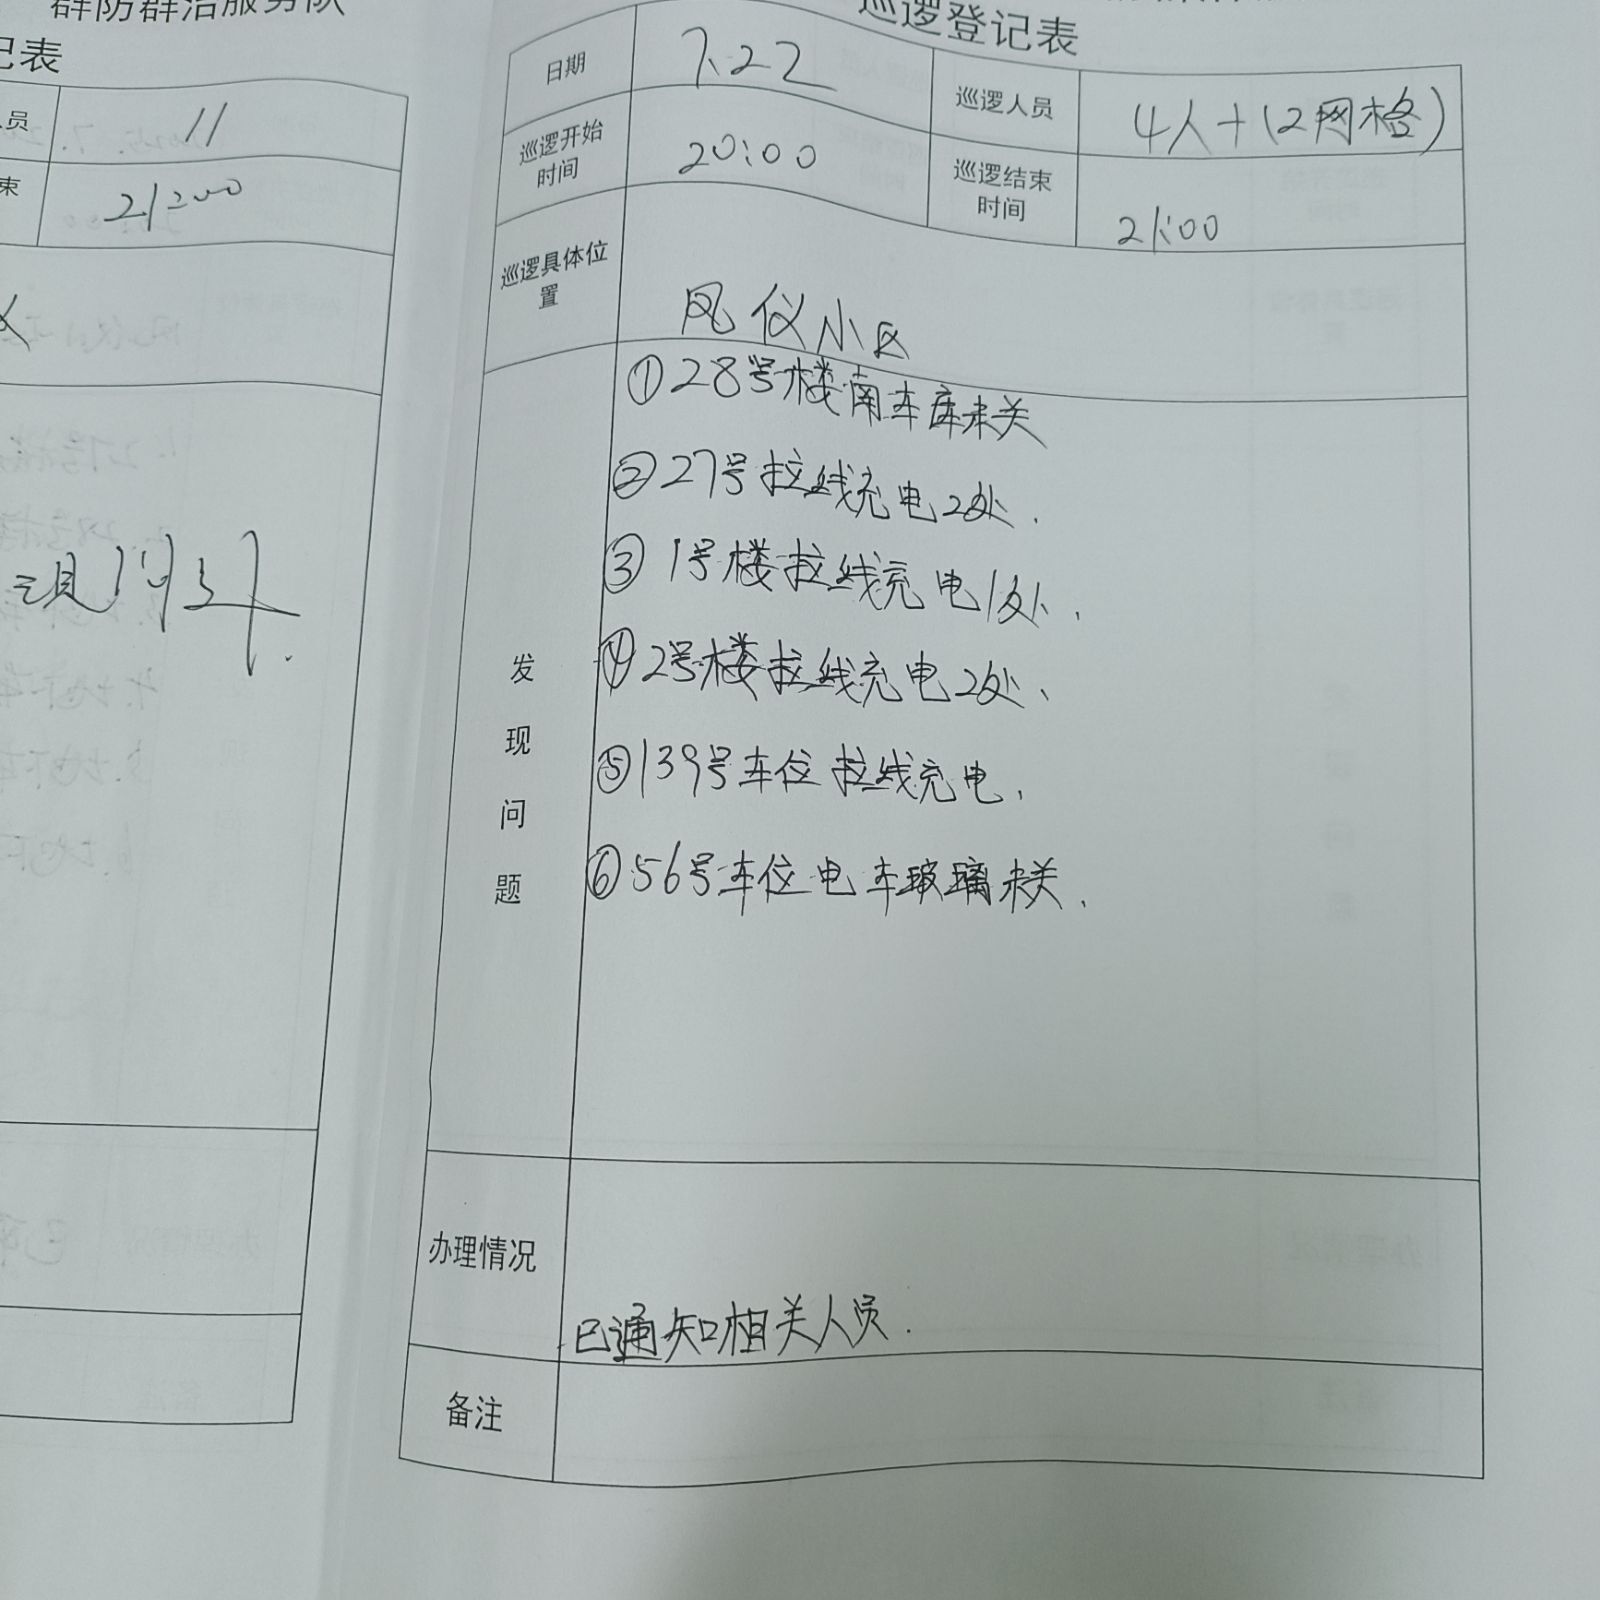 群防群治服务队
记表
员
11
束
21:00
巡逻登记表
日期
7.27
巡逻人员
4人+(2网格)
巡逻开始时间
20:00
巡逻结束时间
21:00
巡逻具体位置
风仪小区
发现问题
①28号楼南车库未关
②27号拉线充电2处.
③1号楼拉线充电1处、
④2号楼拉线充电2处、
⑤139号车位拉线充电、
⑥56号车位电车玻璃未关、
办理情况
已通知相关人员.
备注